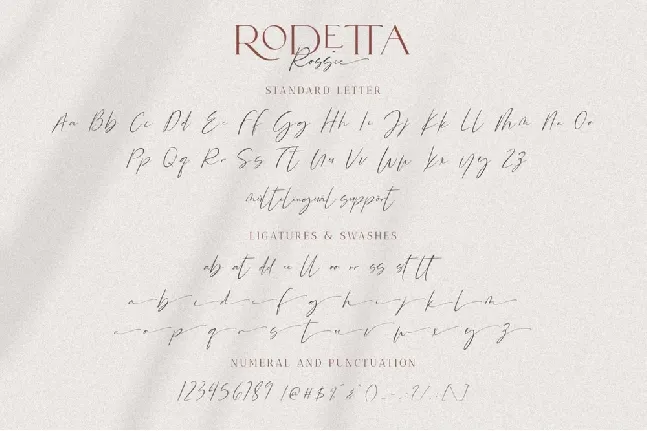 RODETTA
Rossie
STANDARD LETTER
Aa Bb Cc Dd Ee Ff Gg Hh Ii Jj Kk Ll Mm Nn Oo
Pp Qq Rr Ss Tt Uu Vv Ww Xx Yy Zz
multilingual support
LIGATURES & SWASHES
ab at dd ll ss st tt
a b c d e f g h i j k l m
n o p q r s t u v w x y z
NUMERAL AND PUNCTUATION
123456789 !@#$%